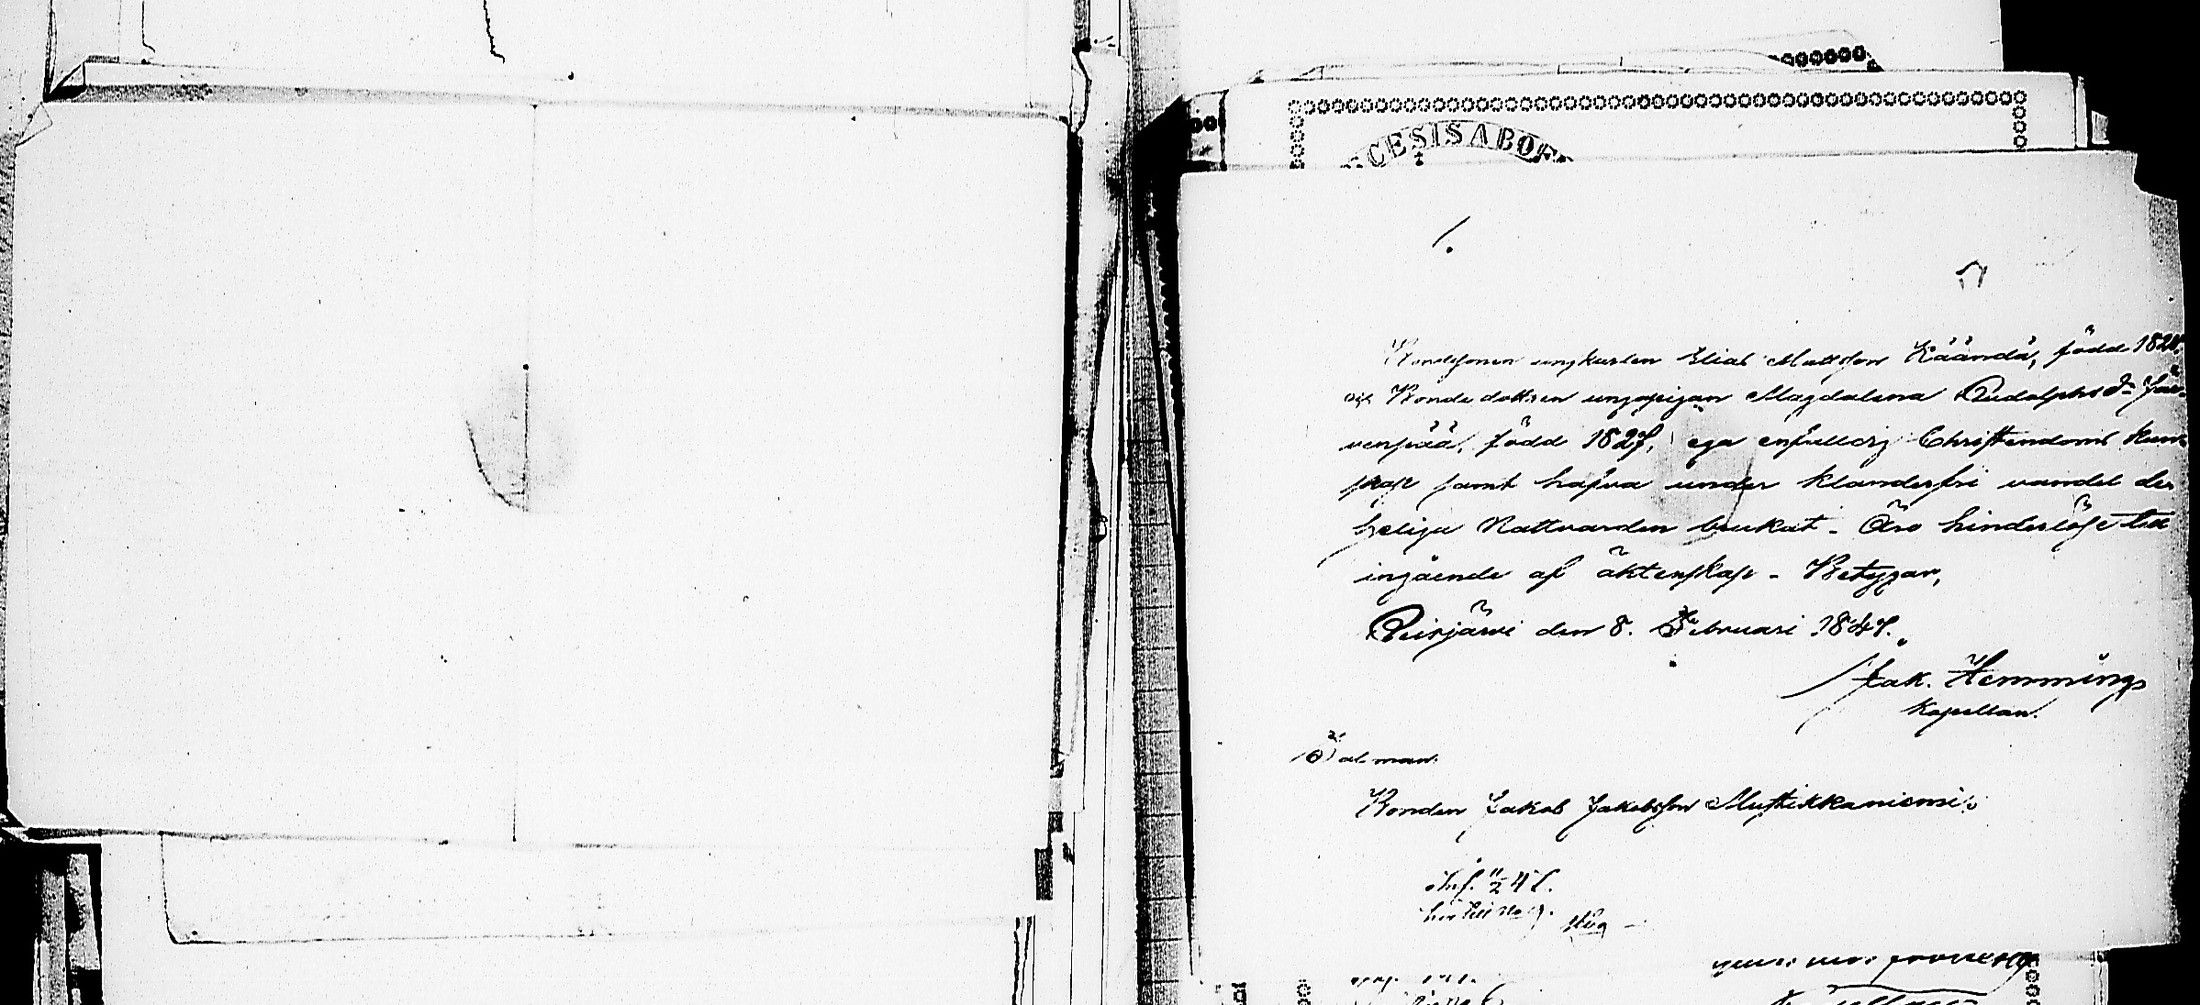 CESIS ABOE
1.
Bondesonen ungkarlen Elias Mattsson Käändä, född 1824.
och Bonde dottren ungpigan Magdalena Rudolphsdr Jär-
venpää, född 1827, ega enfalldig Christendoms kun-
skap samt hafva under klanderfri vandel den
heliga Nattvarden brukat - Äro hinderlöse till
ingående af äktenskap - Betygar,
Reisjärvi den 8. Februari 1847.
Jak. Hemming
Kapellan.
Talman
Bonden Jakob Jakobsson Mustikkaniemi